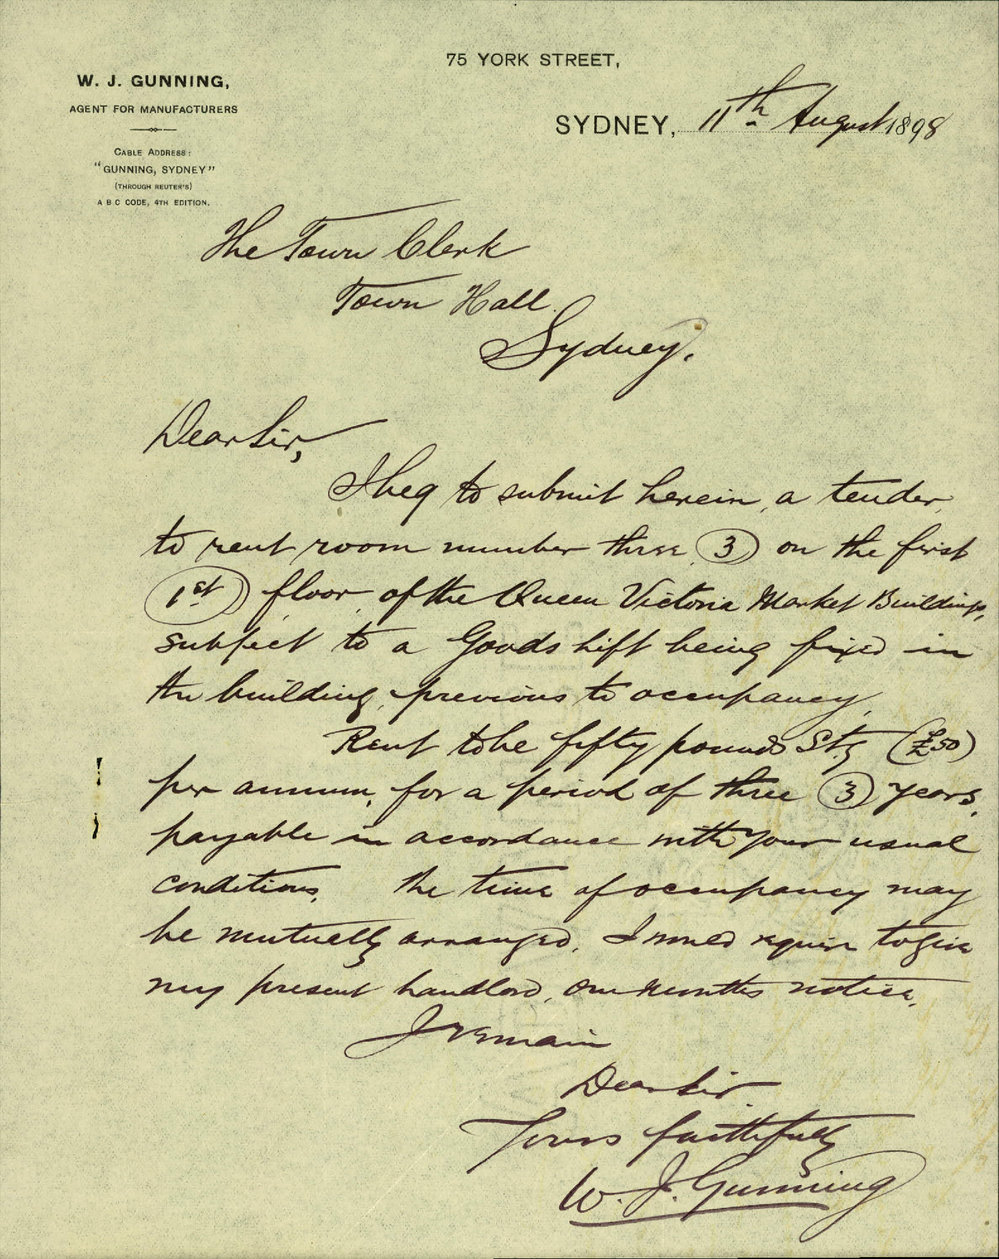 75 YORK STREET,
W. J. GUNNING,
AGENT FOR MANUFACTURERS
CABLE ADDRESS:
"GUNNING, SYDNEY"
(THROUGH REUTER'S)
A B C CODE, 4TH EDITION.
SYDNEY, 11th August 1898
The Town Clerk
Town Hall
Sydney.
Dear Sir,
I beg to submit herein, a tender
to rent room number three (3) on the first
(1st) floor of the Queen Victoria Market Buildings,
subject to a Goods lift being fixed in
the building, previous to occupancy,
Rent to be fifty pounds Stg (£50)
per annum, for a period of three (3) years,
payable in accordance with your usual
conditions, the time of occupancy may
be mutually arranged, I would require to give
my present landlord, one months notice,
I remain
Dear Sir
Yours faithfully
W. J. Gunning